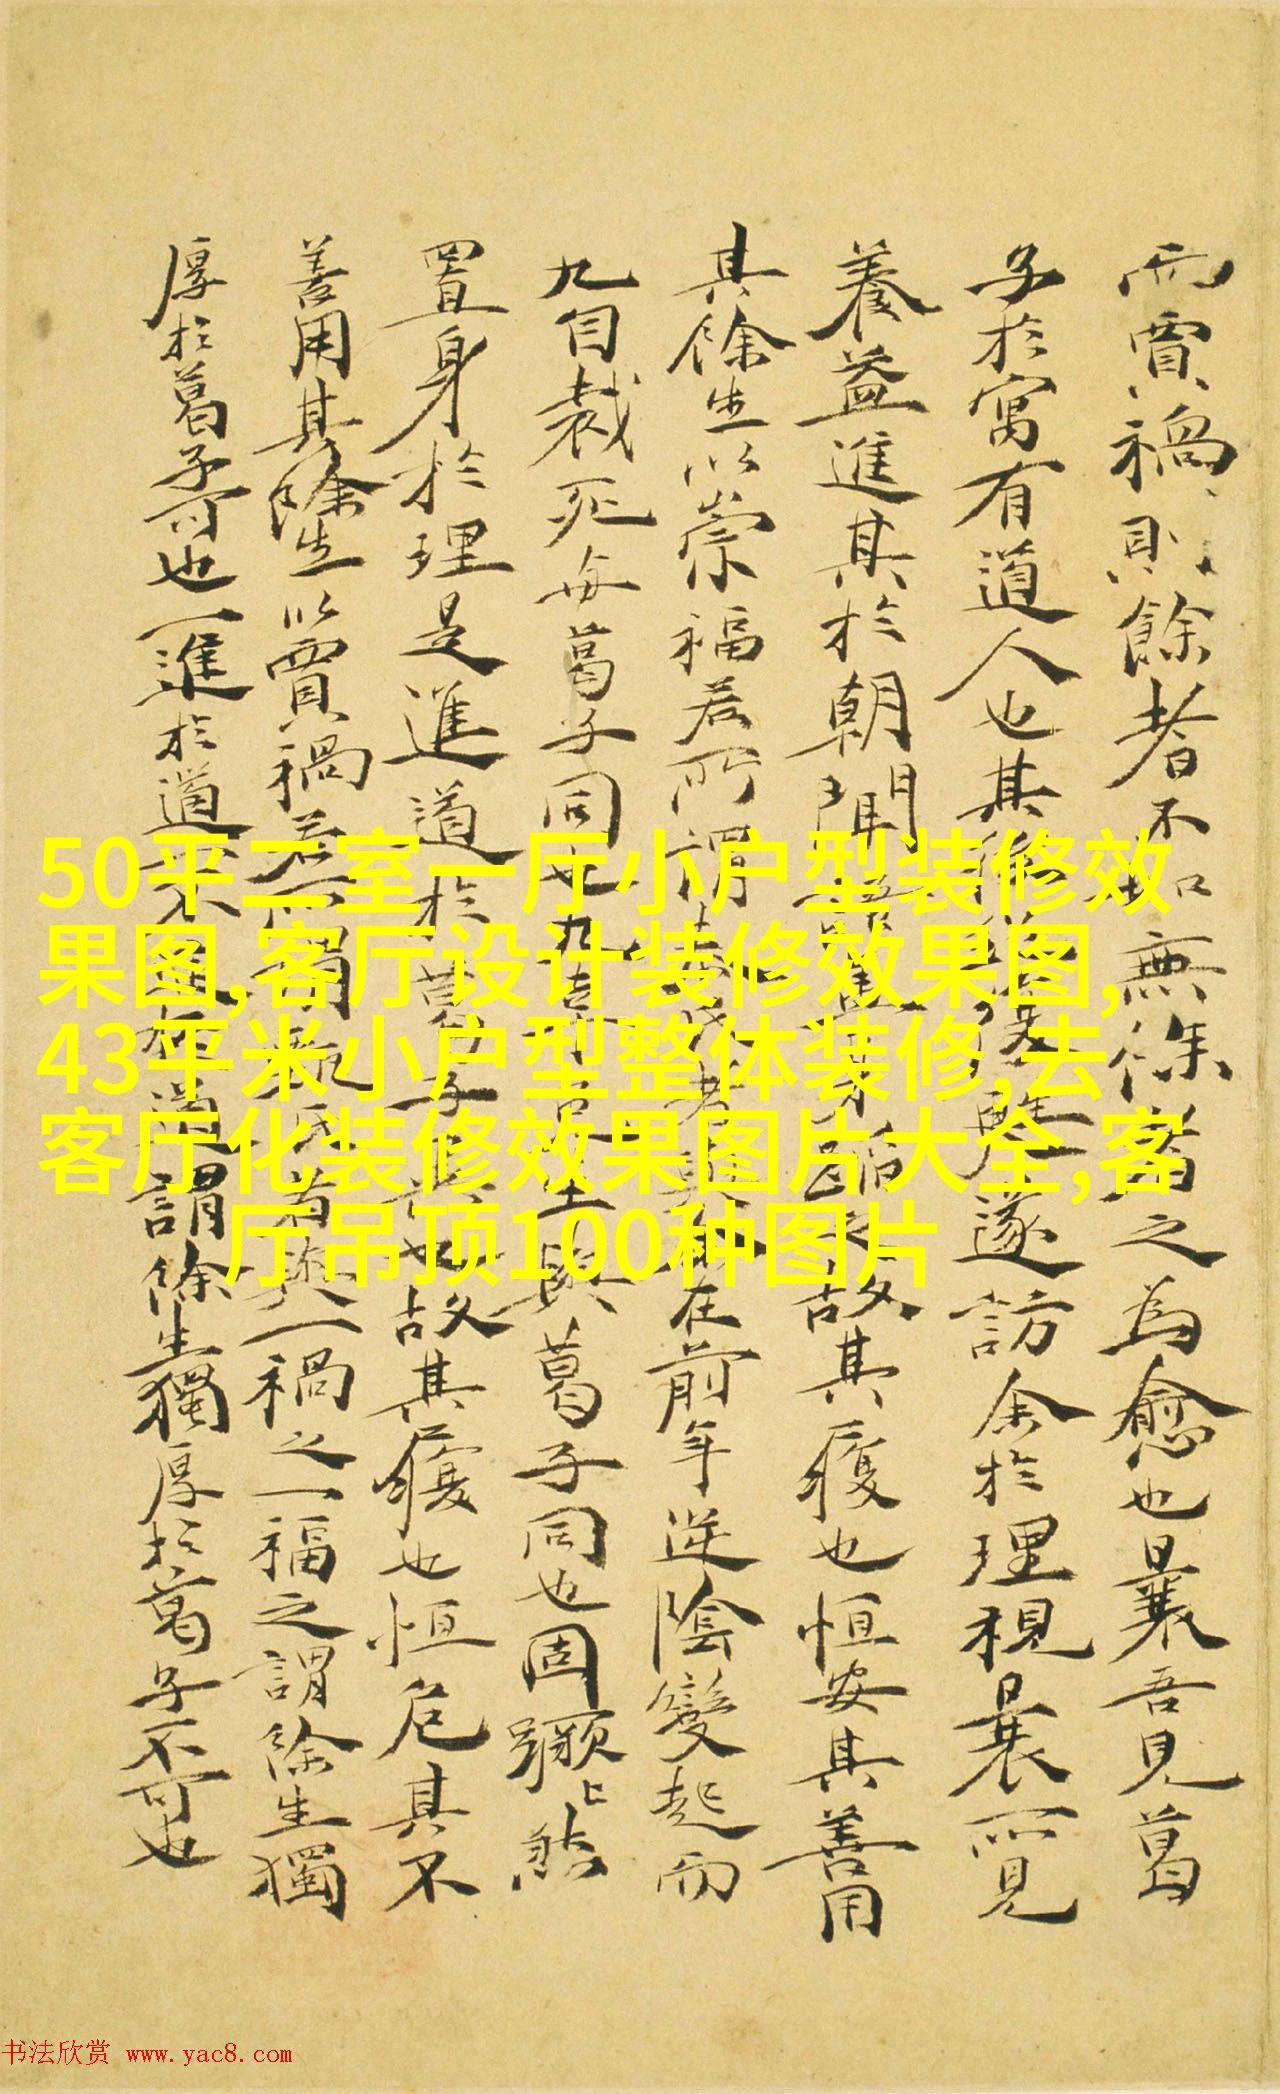 而賈禍則餘者不如無餘者之為愈也曩吾見葛
子於寓有道人也其後遂訪余於理視曩所見
養益進其於朝聞之故其履也恒安其善用
其餘生以崇福若所謂者在前年逆陰變起而
九自裁死与葛子同也九與葛子同也固
置身於理是進道於葛子故其履也恒危其不
善用其餘生以賈禍若一禍之一福之謂餘生獨
厚於葛子可也一進於道謂餘生獨厚於葛子不可也
50平二室一厅小户型装修效
果图,客厅设计装修效果图,
43平米小户型整体装修,去
客厅化装修效果图片大全,客
厅吊顶100种图片
书法欣赏 www.yac8.com